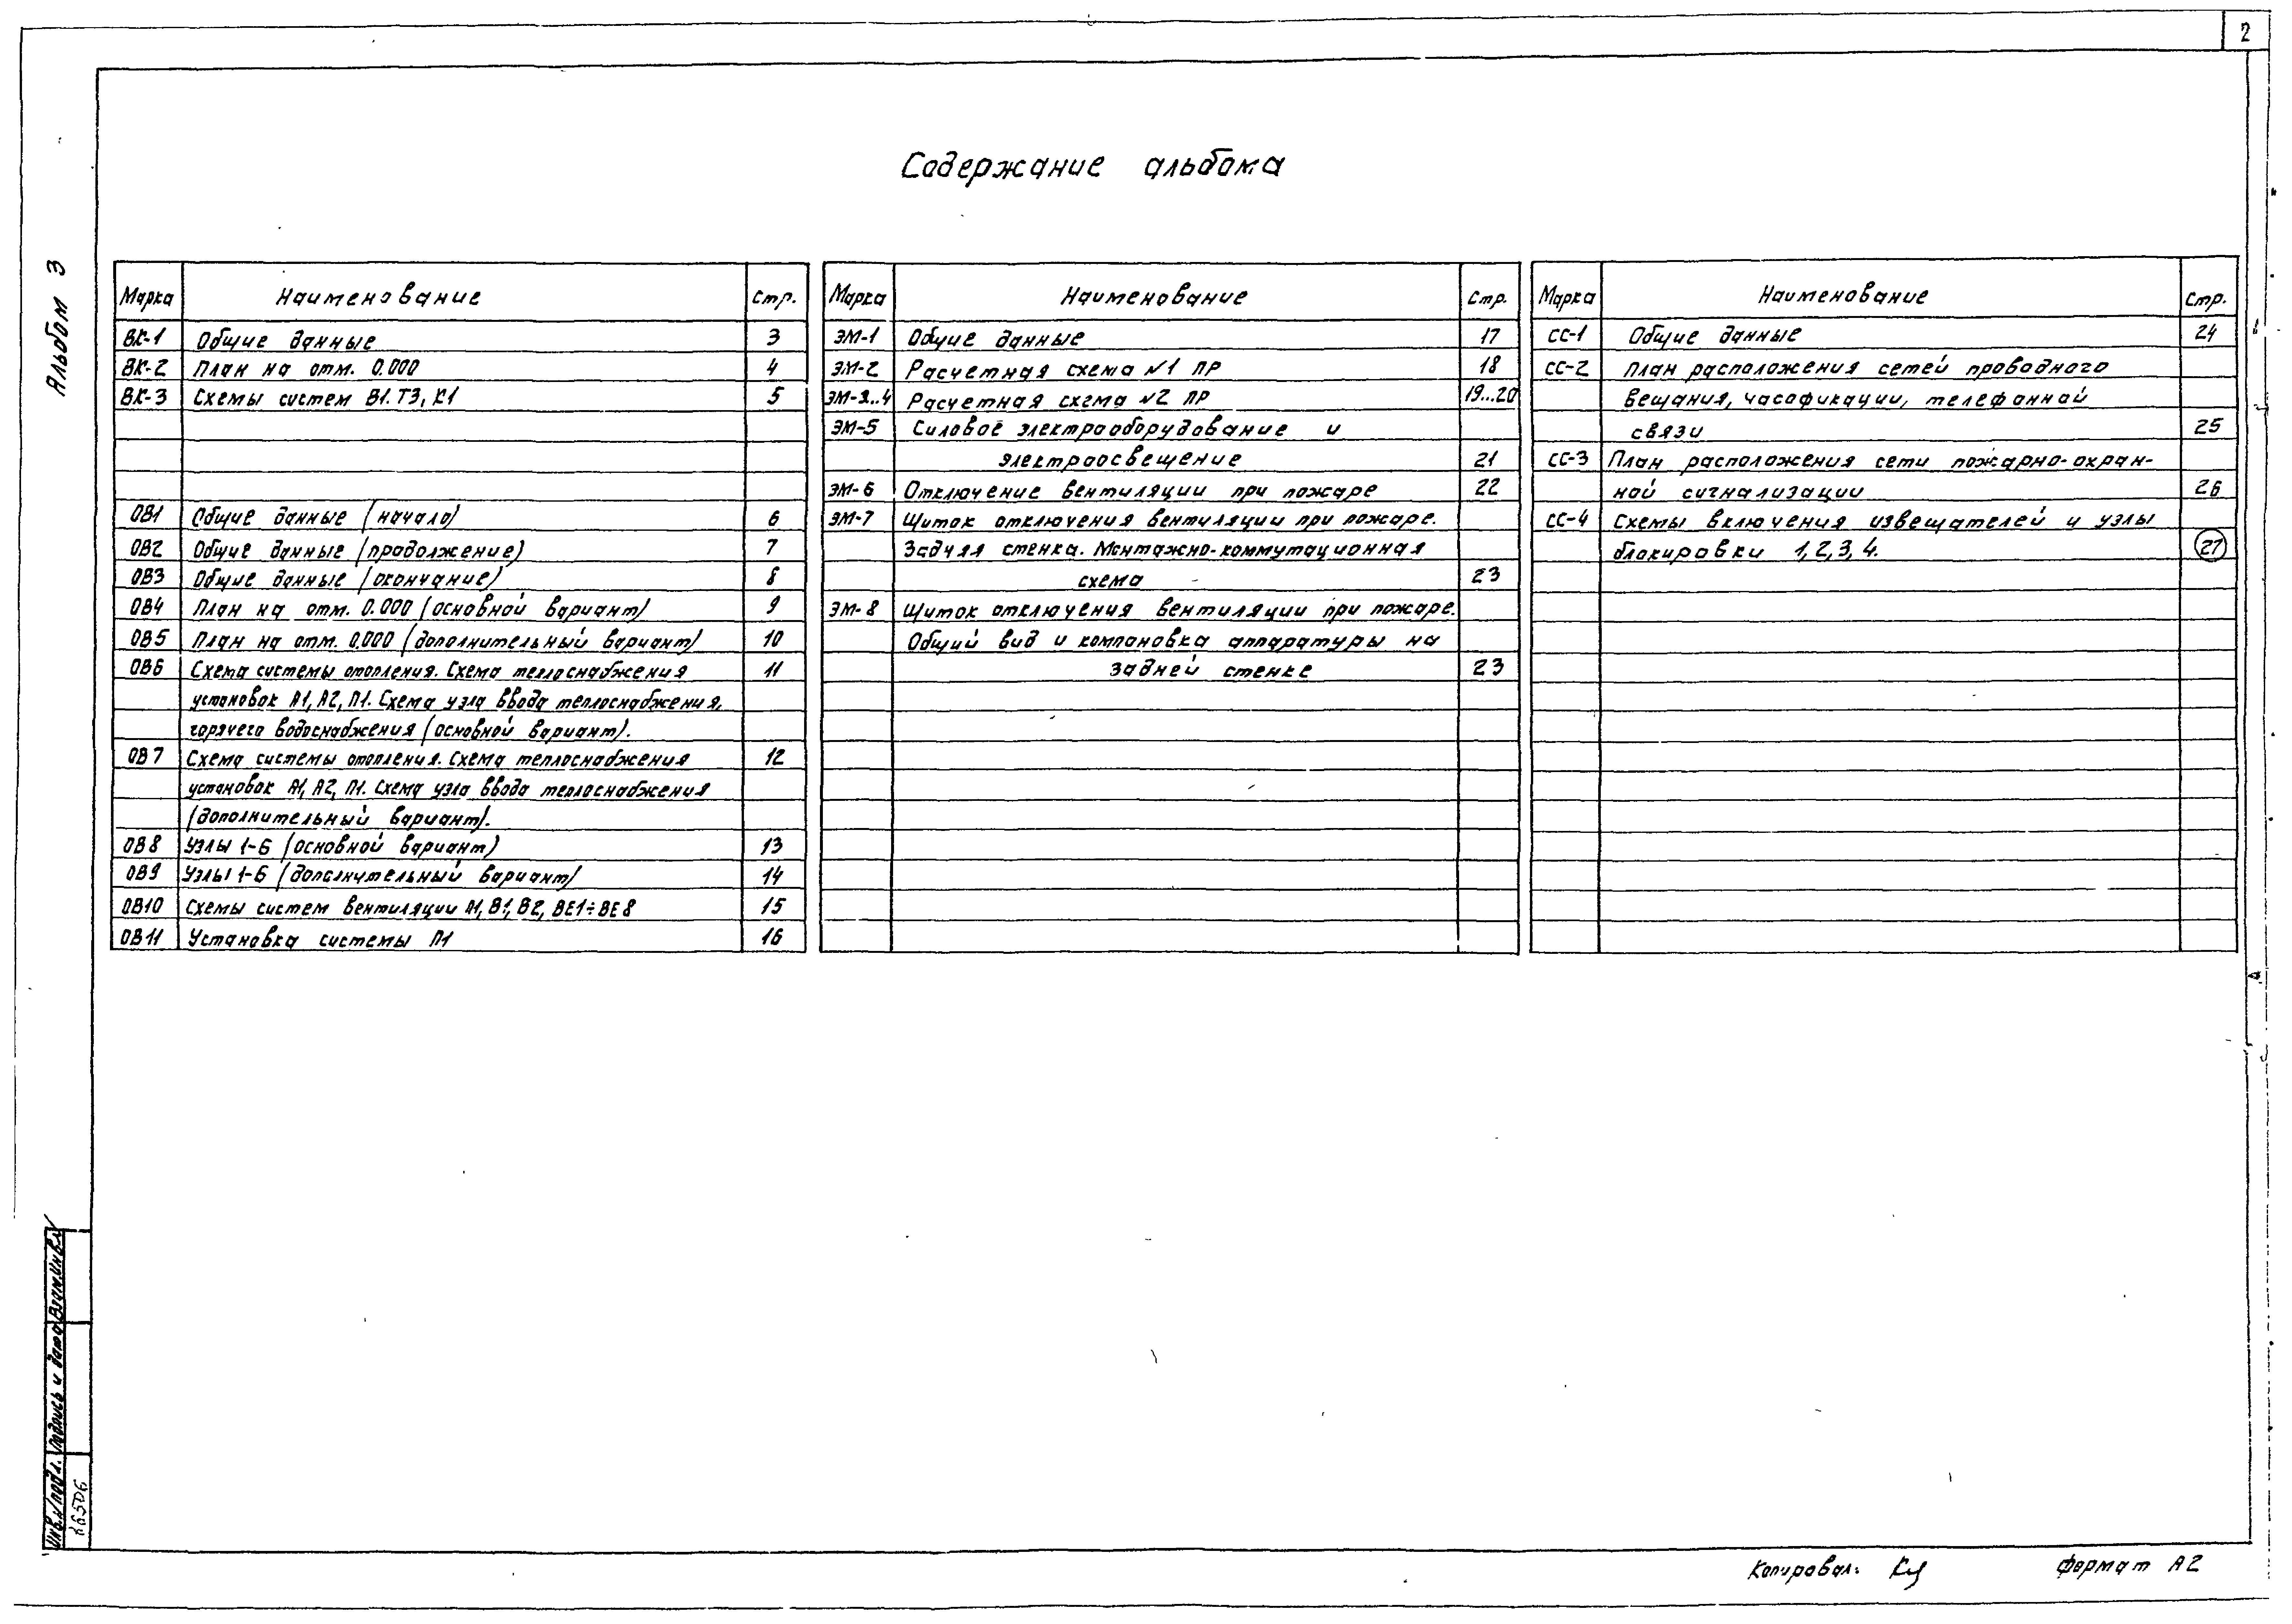 2
Альбом 3
Содержание альбома
Марка Наименование Стр.
ВК-1 Общие данные 3
ВК-2 План на отм. 0.000 4
ВК-3 Схемы систем В1. Т3, К1 5
ОВ1 Общие данные (начало) 6
ОВ2 Общие данные (продолжение) 7
ОВ3 Общие данные (окончание) 8
ОВ4 План на отм. 0.000 (основной вариант) 9
ОВ5 План на отм. 0.000 (дополнительный вариант) 10
ОВ6 Схема системы отопления. Схема теплоснабжения 11
установок А1, А2, П1. Схема узла ввода теплоснабжения,
горячего водоснабжения (основной вариант).
ОВ7 Схема системы отопления. Схема теплоснабжения 12
установок А1, А2, П1. Схема узла ввода теплоснабжения
(дополнительный вариант).
ОВ8 Узлы 1-6 (основной вариант) 13
ОВ9 Узлы 1-6 (дополнительный вариант) 14
ОВ10 Схемы систем вентиляции П1, В1, В2, ВЕ1÷ВЕ8 15
ОВ11 Установка системы П1 16
Марка Наименование Стр.
ЭМ-1 Общие данные 17
ЭМ-2 Расчетная схема №1 ПР 18
ЭМ-3..4 Расчетная схема №2 ПР 19...20
ЭМ-5 Силовое электрооборудование и
электроосвещение 21
ЭМ-6 Отключение вентиляции при пожаре 22
ЭМ-7 Щиток отключения вентиляции при пожаре.
Задняя стенка. Монтажно-коммутационная
схема 23
ЭМ-8 Щиток отключения вентиляции при пожаре.
Общий вид и компоновка аппаратуры на
задней стенке 23
Марка Наименование Стр.
СС-1 Общие данные 24
СС-2 План расположения сетей проводного
вещания, часофикации, телефонной
связи 25
СС-3 План расположения сети пожарно-охран-
ной сигнализации 26
СС-4 Схемы включения извещателей и узлы
блокировки 1, 2, 3, 4. 27
Взам.инв.№
Подпись и дата
Инв.№ подл.
Копировал:
Формат А2